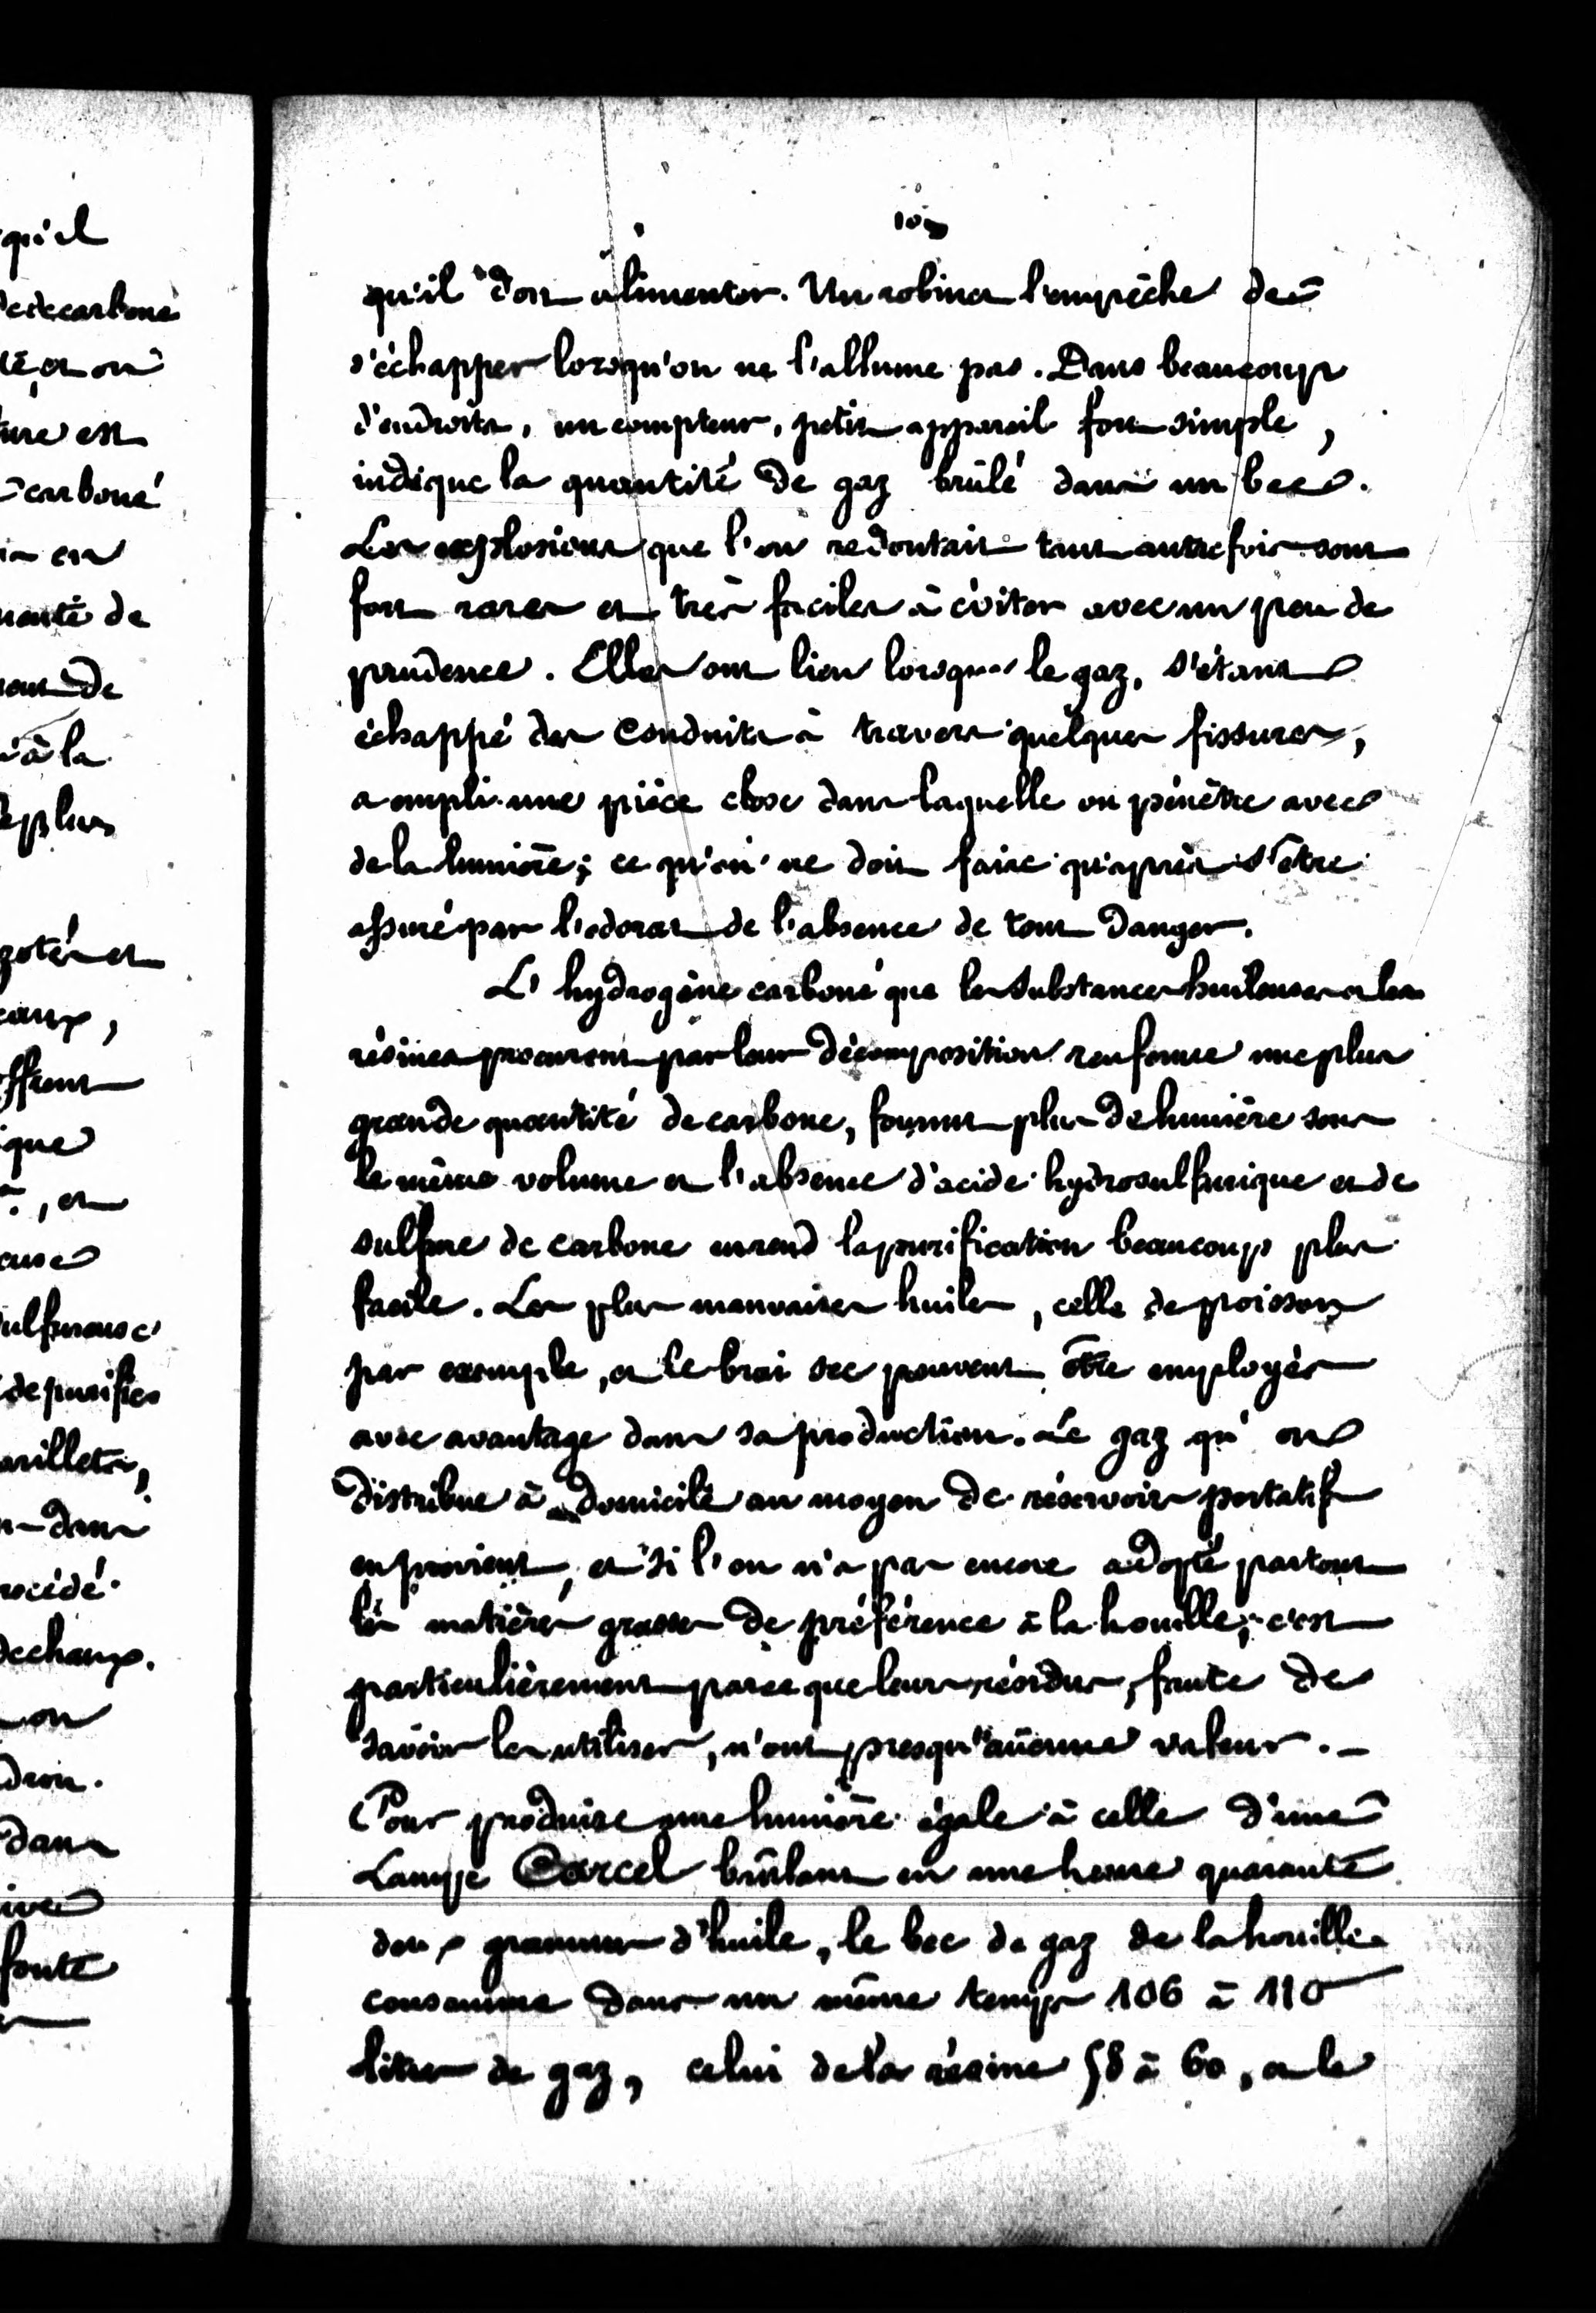 qu'il
de carbone
té, et on
ture est
carboné
en
de
de
à la
plus
et
eaux,
ique
, et
euse
sulfureuse
de purifier
dans
procédé.
de chaux.
on
dans
fonte
qu'il doit alimenter. Un robinet l'empêche de
s'échapper lorsqu'on ne l'allume pas. Dans beaucoup
d'endroits, un compteur, petit appareil fort simple,
indique la quantité de gaz brûlé dans un bec.
Les explosions que l'on redoutait tant autrefois sont
fort rares et très faciles à éviter avec un peu de
prudence. Elles ont lieu lorsque le gaz, s'étant
échappé des conduits à travers quelques fissures,
a empli une pièce close dans laquelle on pénètre avec
de la lumière; ce qu'on ne doit faire qu'après s'être
assuré par l'odorat de l'absence de tout danger.
L'hydrogène carboné que les substances huileuses et les
résines procurent par leur décomposition renferme une plus
grande quantité de carbone, fournit plus de lumière sous
le même volume et l'absence d'acide hydrosulfurique et de
sulfure de carbone en rend la purification beaucoup plus
facile. Les plus mauvaises huiles, celle de poisson
par exemple, et le brai sec peuvent être employés
avec avantage dans sa production. Le gaz qu'on
distribue à domicile au moyen de réservoirs portatifs
en provient, et si l'on n'a pas encore adopté partout
les matières grasses de préférence à la houille, c'est
particulièrement parce que leurs résidus, faute de
savoir les utiliser, n'ont presqu'aucune valeur. —
Pour produire une lumière égale à celle d'une
Lampe Carcel brûlant en une heure quarante
deux grammes d'huile, le bec de gaz de la houille
consomme dans un même temps 106 à 110
litres de gaz, celui de la résine 58 à 60, et le